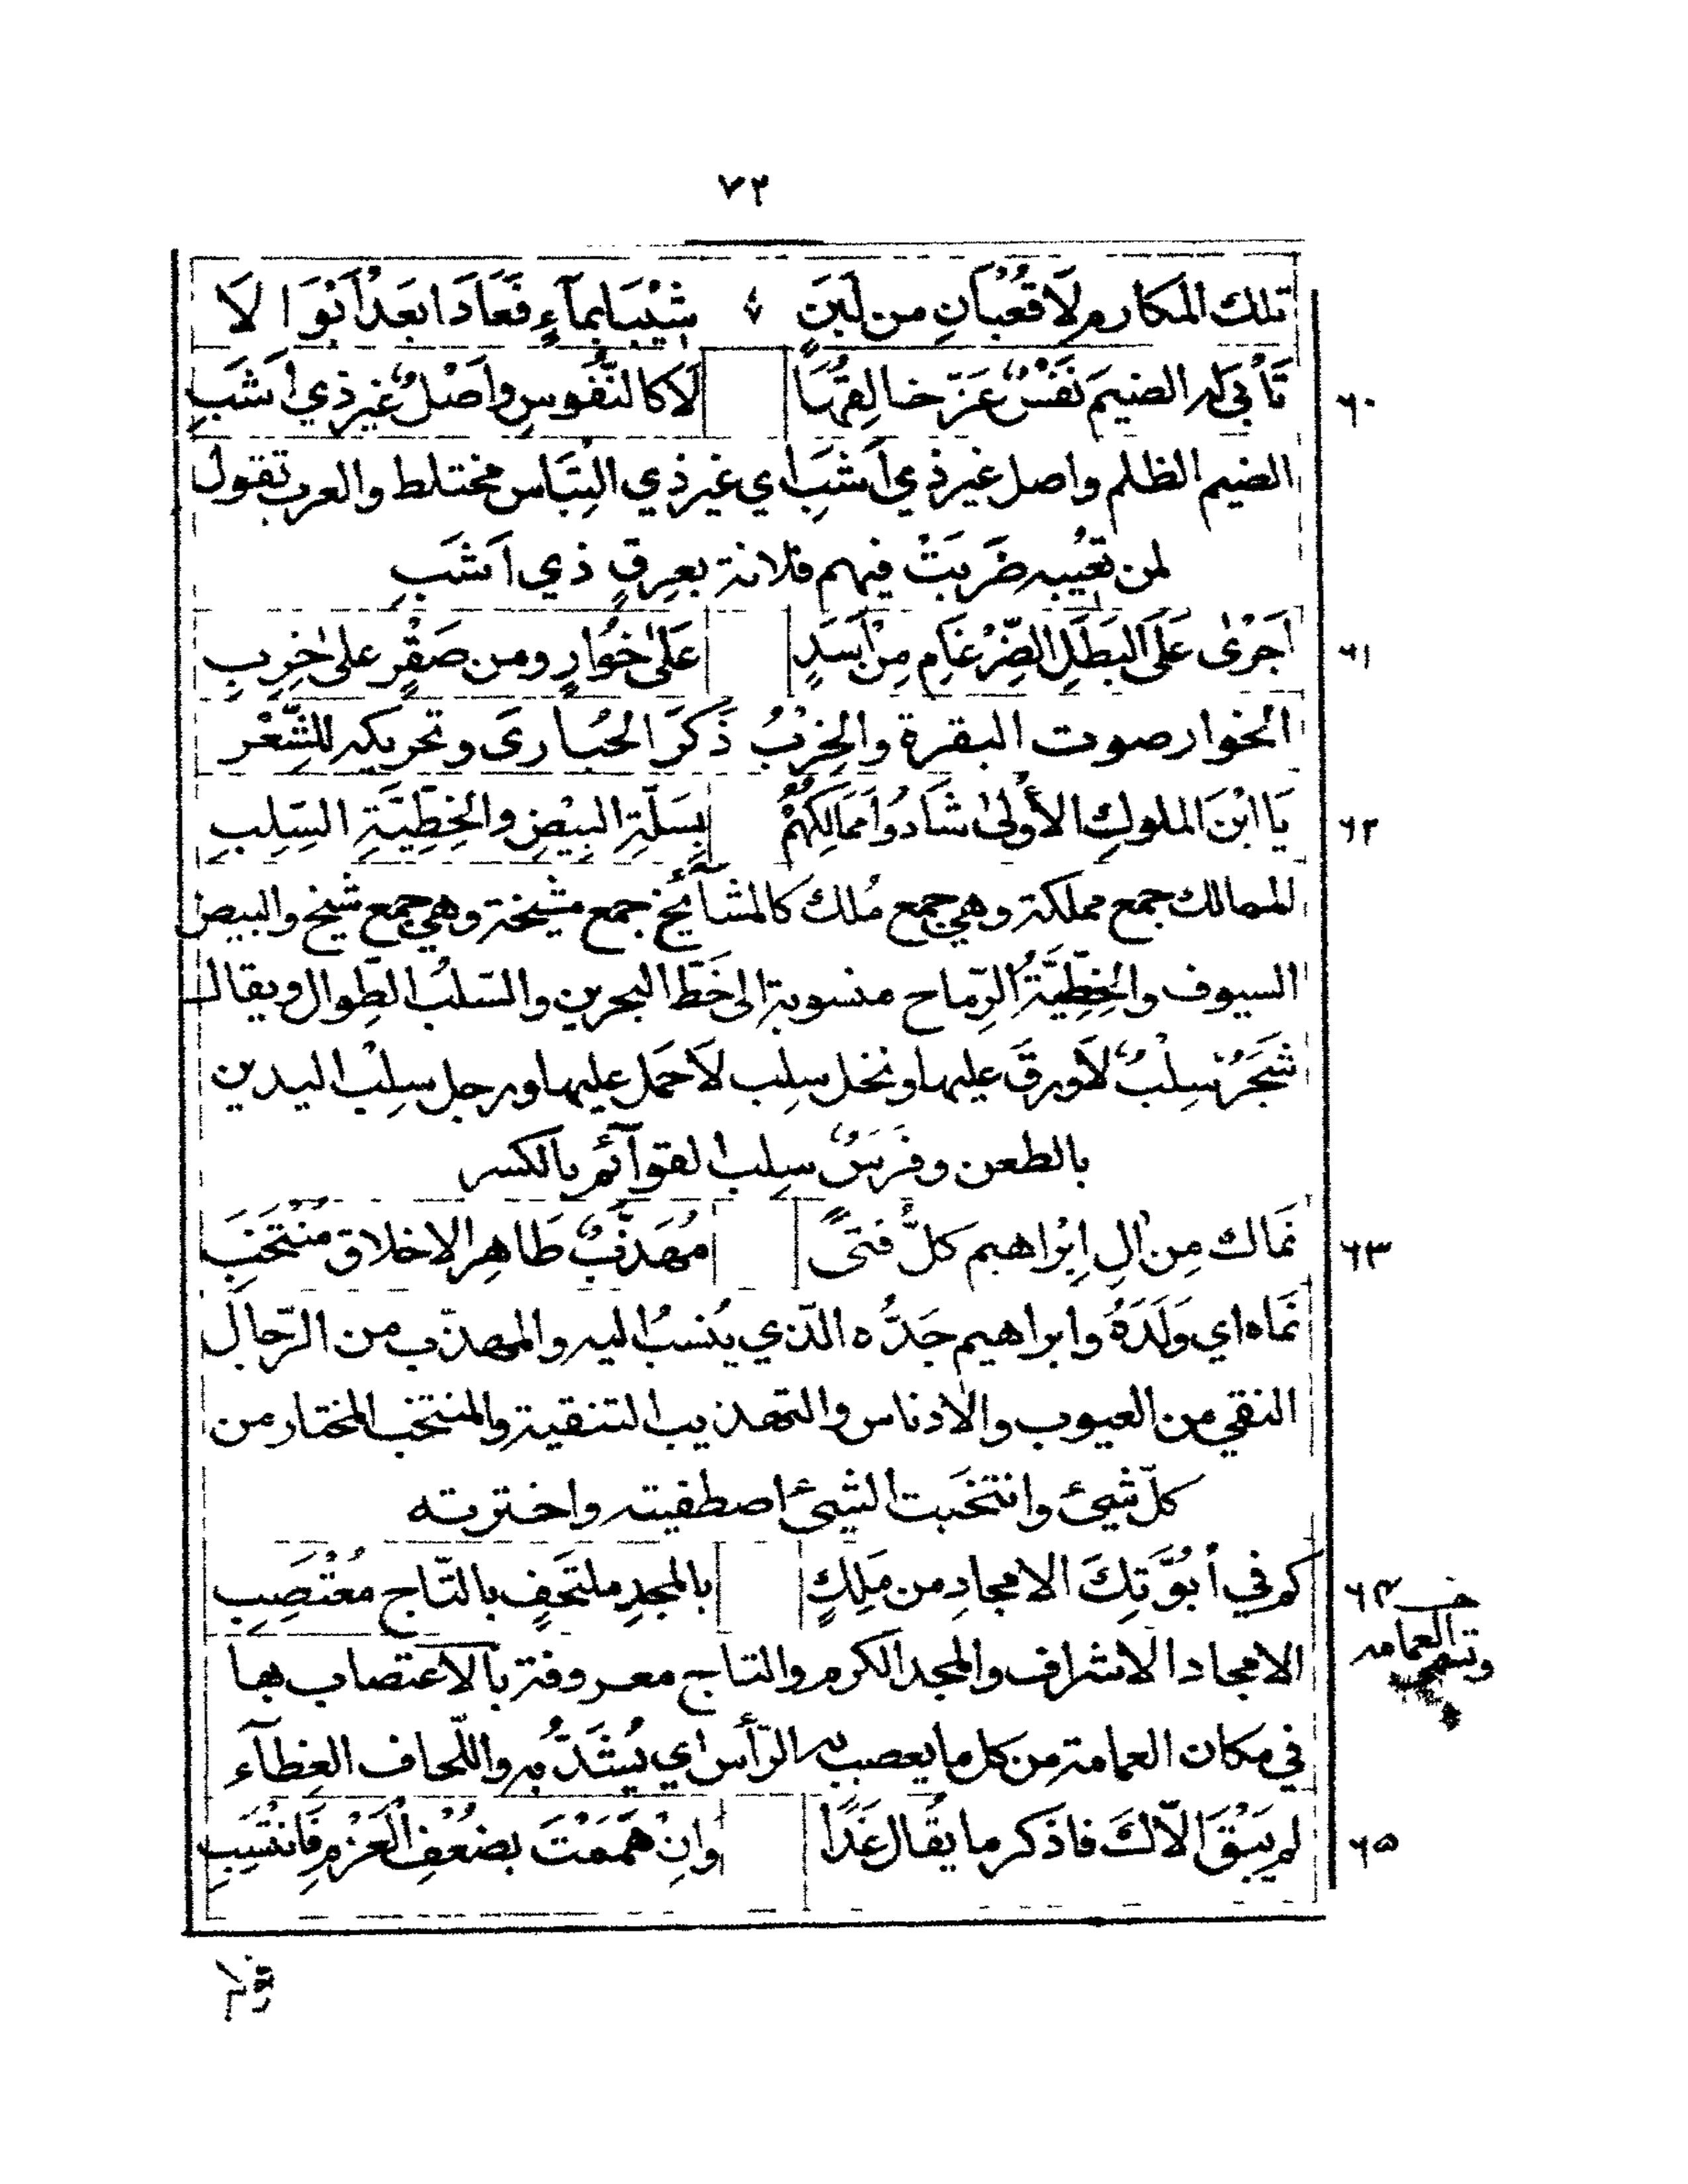 ٧٢
تلك المكارم لَا قَعْبَانِ من لَبَنٍ ⬦ شِيْبَا بِمَآءٍ فَعَادَا بَعْدُ اَبْوَالَا
٦٠ تَأْبٰى لہ الضيمَ نَفْسٌ عَزَّ خالِقُهَا لَا كالنُّفُوسِ واَصْلٌ غير ذي اَشَبِ
الضيم الظلم واصل غير ذي اَشَبِ اي غير ذي التِبَاس مختلط والعرب تقول
لمن تعُيبہ ضَرَبَتْ فيهم فلانة بعِرقٍ ذي اَشَبِ
٦١ اَجرٰى عَلَى البَطَلِ الضِّرْغَامِ مِنْ اَسَدٍ عَلٰى خُوَارٍ ومن صَقْرٍ على خَرِبِ
الخوار صوت البقرة والخِرْبُ ذَكَرَ الحُبارى وتحريكہ للشِّعْر
٦٢ يَا ابْنَ الملوكِ الأُولىٰ شَادُوا مَمَالِكَهُمْ بِسَلّةِ البِيْضِ والخِطِّيَّةِ السَّلِبِ
الممالك جمع مملكة وهي جمع مُلك كالمشآئخ جمع مشيخة وهي جمع شيخ والبيض
السيوف والخِطِّيَّةُ الرِّماح منسوبة الى خَطّ البحرين والسّلبُ الطِّوال ويقال
شَجَرٌ سِلْبٌ لَا ورقَ عليها ونخل سلِب لَا حَمل عليها ورجل سلِبْ اليدين
بالطعن وفَرَسٌ سلِب القوآئم بالكسر
٦٣ نَماك مِن اٰلِ اِبْراهيم كلُّ فتىً مُهَذَّبٌ طَاهِرِ الاخلاق مُنْتَخَبِ
نَماه اي وَلَدَهُ وابراهيم جَدُّه الّذي يُنسبُ اليہ والمهذّب من الرّجال
النقي من العيوب والادناس والتهذيب التنقية والمنتخب المختار من
كلّ شيئ وانتخَبت الشيئ اصطفيتہ واخترته
٦٤ كم في أُبُوَّتِكَ الامجادِ من مَلِكٍ بالمجدِ ملتَحَفٍ بالتّاج مُعْتَصِبِ
الامجاد الاشراف والمجد الكرم والتاج معروفة بالاعتصاب بها
وتسمى العمامه
في مكان العمامة من كل ما يعصب بہ الرّأس اي يُشَدُّ بہ واللّحاف الغِطآء
٦٥ لم يَبْقَ الّاكَ فاذكر ما يقُال غَدًا وانْ هَمَمْتَ بضُعْفِ الْعَزْمِ فَانتْسَبِ